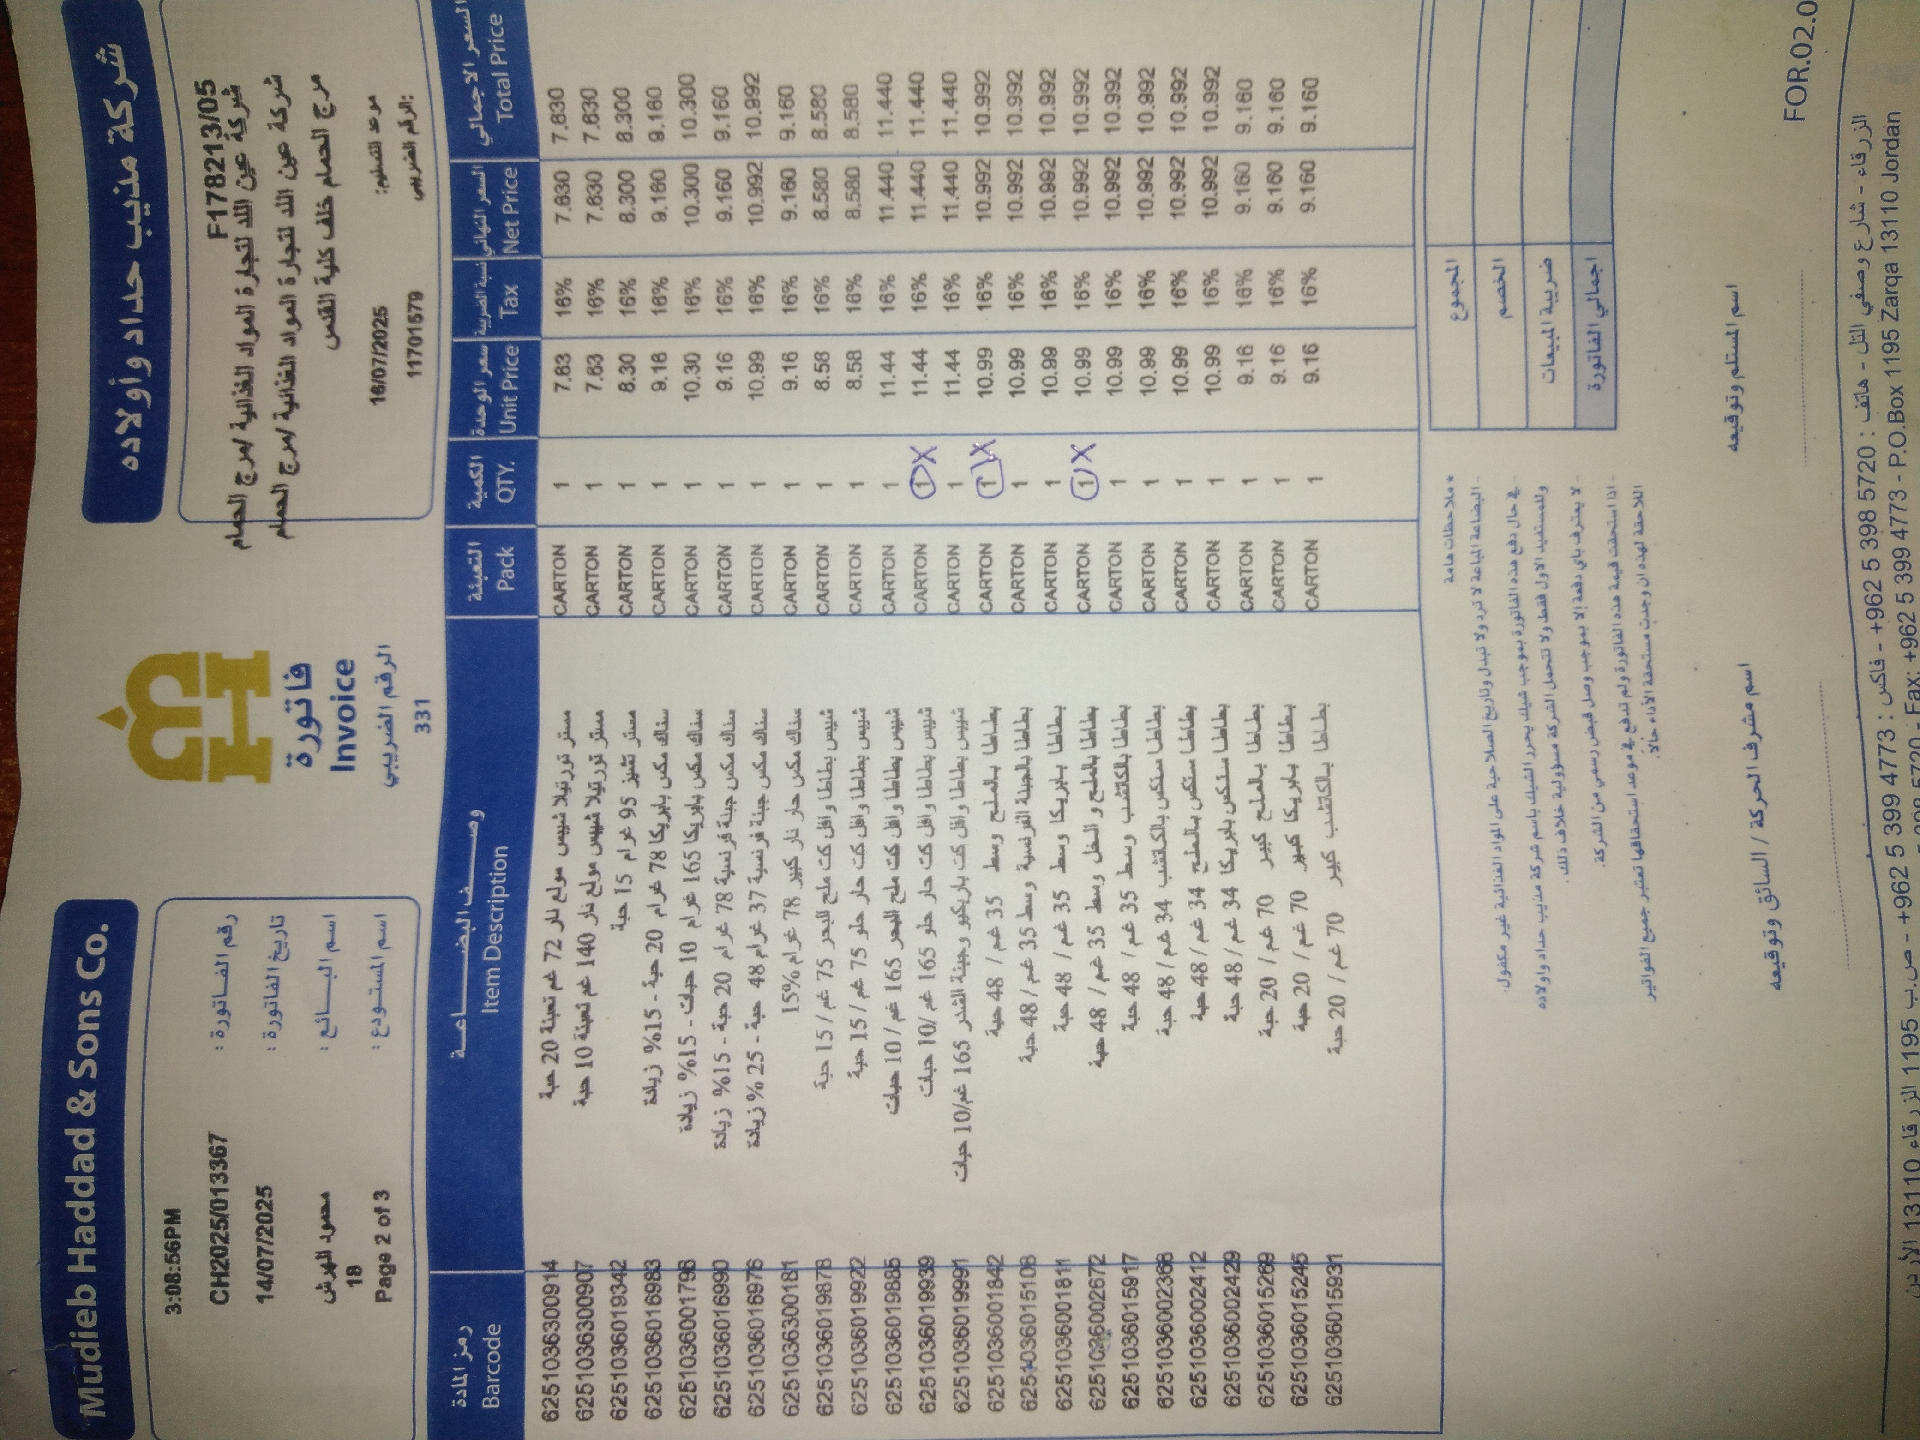 Mudieb Haddad & Sons Co.
شركة مذيب حداد وأولاده
فاتورة
Invoice
الرقم الضريبي
331
3:08:56PM
رقم الفاتورة : CH2025/013367
تاريخ الفاتورة : 14/07/2025
اسم البائع : محمود الهرش
اسم المستودع: 18
Page 2 of 3
F178213/05
شركة عين اللد لتجارة المواد الغذائية /مرج الحمام
شركة عين اللد لتجارة المواد الغذائية /مرج الحمام
مرج الحمام خلف كلية القدس
موعد التسليم: 16/07/2025
الرقم الضريبي: 11701579
رمز المادة وصف البضاعة التعبئة الكمية سعر الوحدة نسبة الضريبة السعر النهائي السعر الاجمالي
Barcode Item Description Pack QTY. Unit Price Tax Net Price Total Price
6251036300914 مستر تورتيلا شيبس مولع نار 72 غم تعبئة 20 حبة CARTON 1 7.83 16% 7.830 7.830
6251036300907 مستر تورتيلا شيبس مولع نار 140 غم تعبئة 10 حبة CARTON 1 7.83 16% 7.830 7.830
6251036019342 مستر تشيز 95 غرام 15 حبة CARTON 1 8.30 16% 8.300 8.300
6251036016983 سناك مكس بابريكا 78 غرام 20 حبة - 15% زيادة CARTON 1 9.16 16% 9.160 9.160
6251036001798 سناك مكس بابريكا 165 غرام 10 حبات - 15% زيادة CARTON 1 10.30 16% 10.300 10.300
6251036016990 سناك مكس جبنة فرنسية 78 غرام 20 حبة - 15% زيادة CARTON 1 9.16 16% 9.160 9.160
6251036016976 سناك مكس جبنة فرنسية 37 غرام 48 حبة - 25 % زيادة CARTON 1 10.99 16% 10.992 10.992
6251036300181 سناك مكس حار نار كبير 78 غرام 15% CARTON 1 9.16 16% 9.160 9.160
6251036019878 شيبس بطاطا وافل كت ملح البحر 75 غم / 15 حبة CARTON 1 8.58 16% 8.580 8.580
6251036019922 شيبس بطاطا وافل كت حار حلو 75 غم / 15 حبة CARTON 1 8.58 16% 8.580 8.580
6251036019885 شيبس بطاطا وافل كت ملح البحر 165 غم / 10 حبات CARTON 1 11.44 16% 11.440 11.440
6251036019939 شيبس بطاطا وافل كت حار حلو 165 غم /10 حبات CARTON 1 X 11.44 16% 11.440 11.440
6251036019991 شيبس بطاطا وافل كت باربكيو وجبنة الشدر 165 غم/10 حبات CARTON 1 11.44 16% 11.440 11.440
6251036001842 بطاطا بالملح وسط 35 غم / 48 حبة CARTON 1 X 10.99 16% 10.992 10.992
6251036015108 بطاطا بالجبنة الفرنسية وسط 35 غم / 48 حبة CARTON 1 10.99 16% 10.992 10.992
6251036001811 بطاطا بابريكا وسط 35 غم / 48 حبة CARTON 1 10.99 16% 10.992 10.992
6251036002672 بطاطا بالملح و الخل وسط 35 غم / 48 حبة CARTON 1 X 10.99 16% 10.992 10.992
6251036015917 بطاطا بالكاتشب وسط 35 غم / 48 حبة CARTON 1 10.99 16% 10.992 10.992
6251036002368 بطاطا ستكس بالكاتشب 34 غم / 48 حبة CARTON 1 10.99 16% 10.992 10.992
6251036002412 بطاطا ستكس بالملح 34 غم / 48 حبة CARTON 1 10.99 16% 10.992 10.992
6251036002429 بطاطا ستكس بابريكا 34 غم / 48 حبة CARTON 1 10.99 16% 10.992 10.992
6251036015269 بطاطا بالملح كبير 70 غم / 20 حبة CARTON 1 9.16 16% 9.160 9.160
6251036015245 بطاطا بابريكا كبير 70 غم / 20 حبة CARTON 1 9.16 16% 9.160 9.160
6251036015931 بطاطا بالكاتشب كبير 70 غم / 20 حبة CARTON 1 9.16 16% 9.160 9.160
المجموع
الخصم
ضريبة المبيعات
اجمالي الفاتورة
* ملاحظات هامة
- البضاعة المباعة لا ترد ولا تبدل وتاريخ الصلاحية على المواد الغذائية غير مكفول.
- في حال دفع هذه الفاتورة بموجب شيك يحرر الشيك باسم شركة مذيب حداد وأولاده
وللمستفيد الاول فقط ولا تتحمل الشركة مسؤولية خلاف ذلك.
- لا يعترف بأي دفعة إلا بموجب وصل قبض رسمي من الشركة.
- اذا استحقت قيمة هذه الفاتورة ولم تدفع في موعد استحقاقها تعتبر جميع الفواتير
اللاحقة لهذه ان وجدت مستحقة الأداء حالاً.
اسم مشرف الحركة / السائق وتوقيعه
اسم المستلم وتوقيعه
FOR.02.0
الزرقاء - شارع وصفي التل - هاتف : 5720 398 5 962+ - فاكس : 4773 399 5 962+ - ص.ب 1195 الزرقاء 13110 الأردن
398 5720 - Fax: +962 5 399 4773 - P.O.Box 1195 Zarqa 13110 Jordan